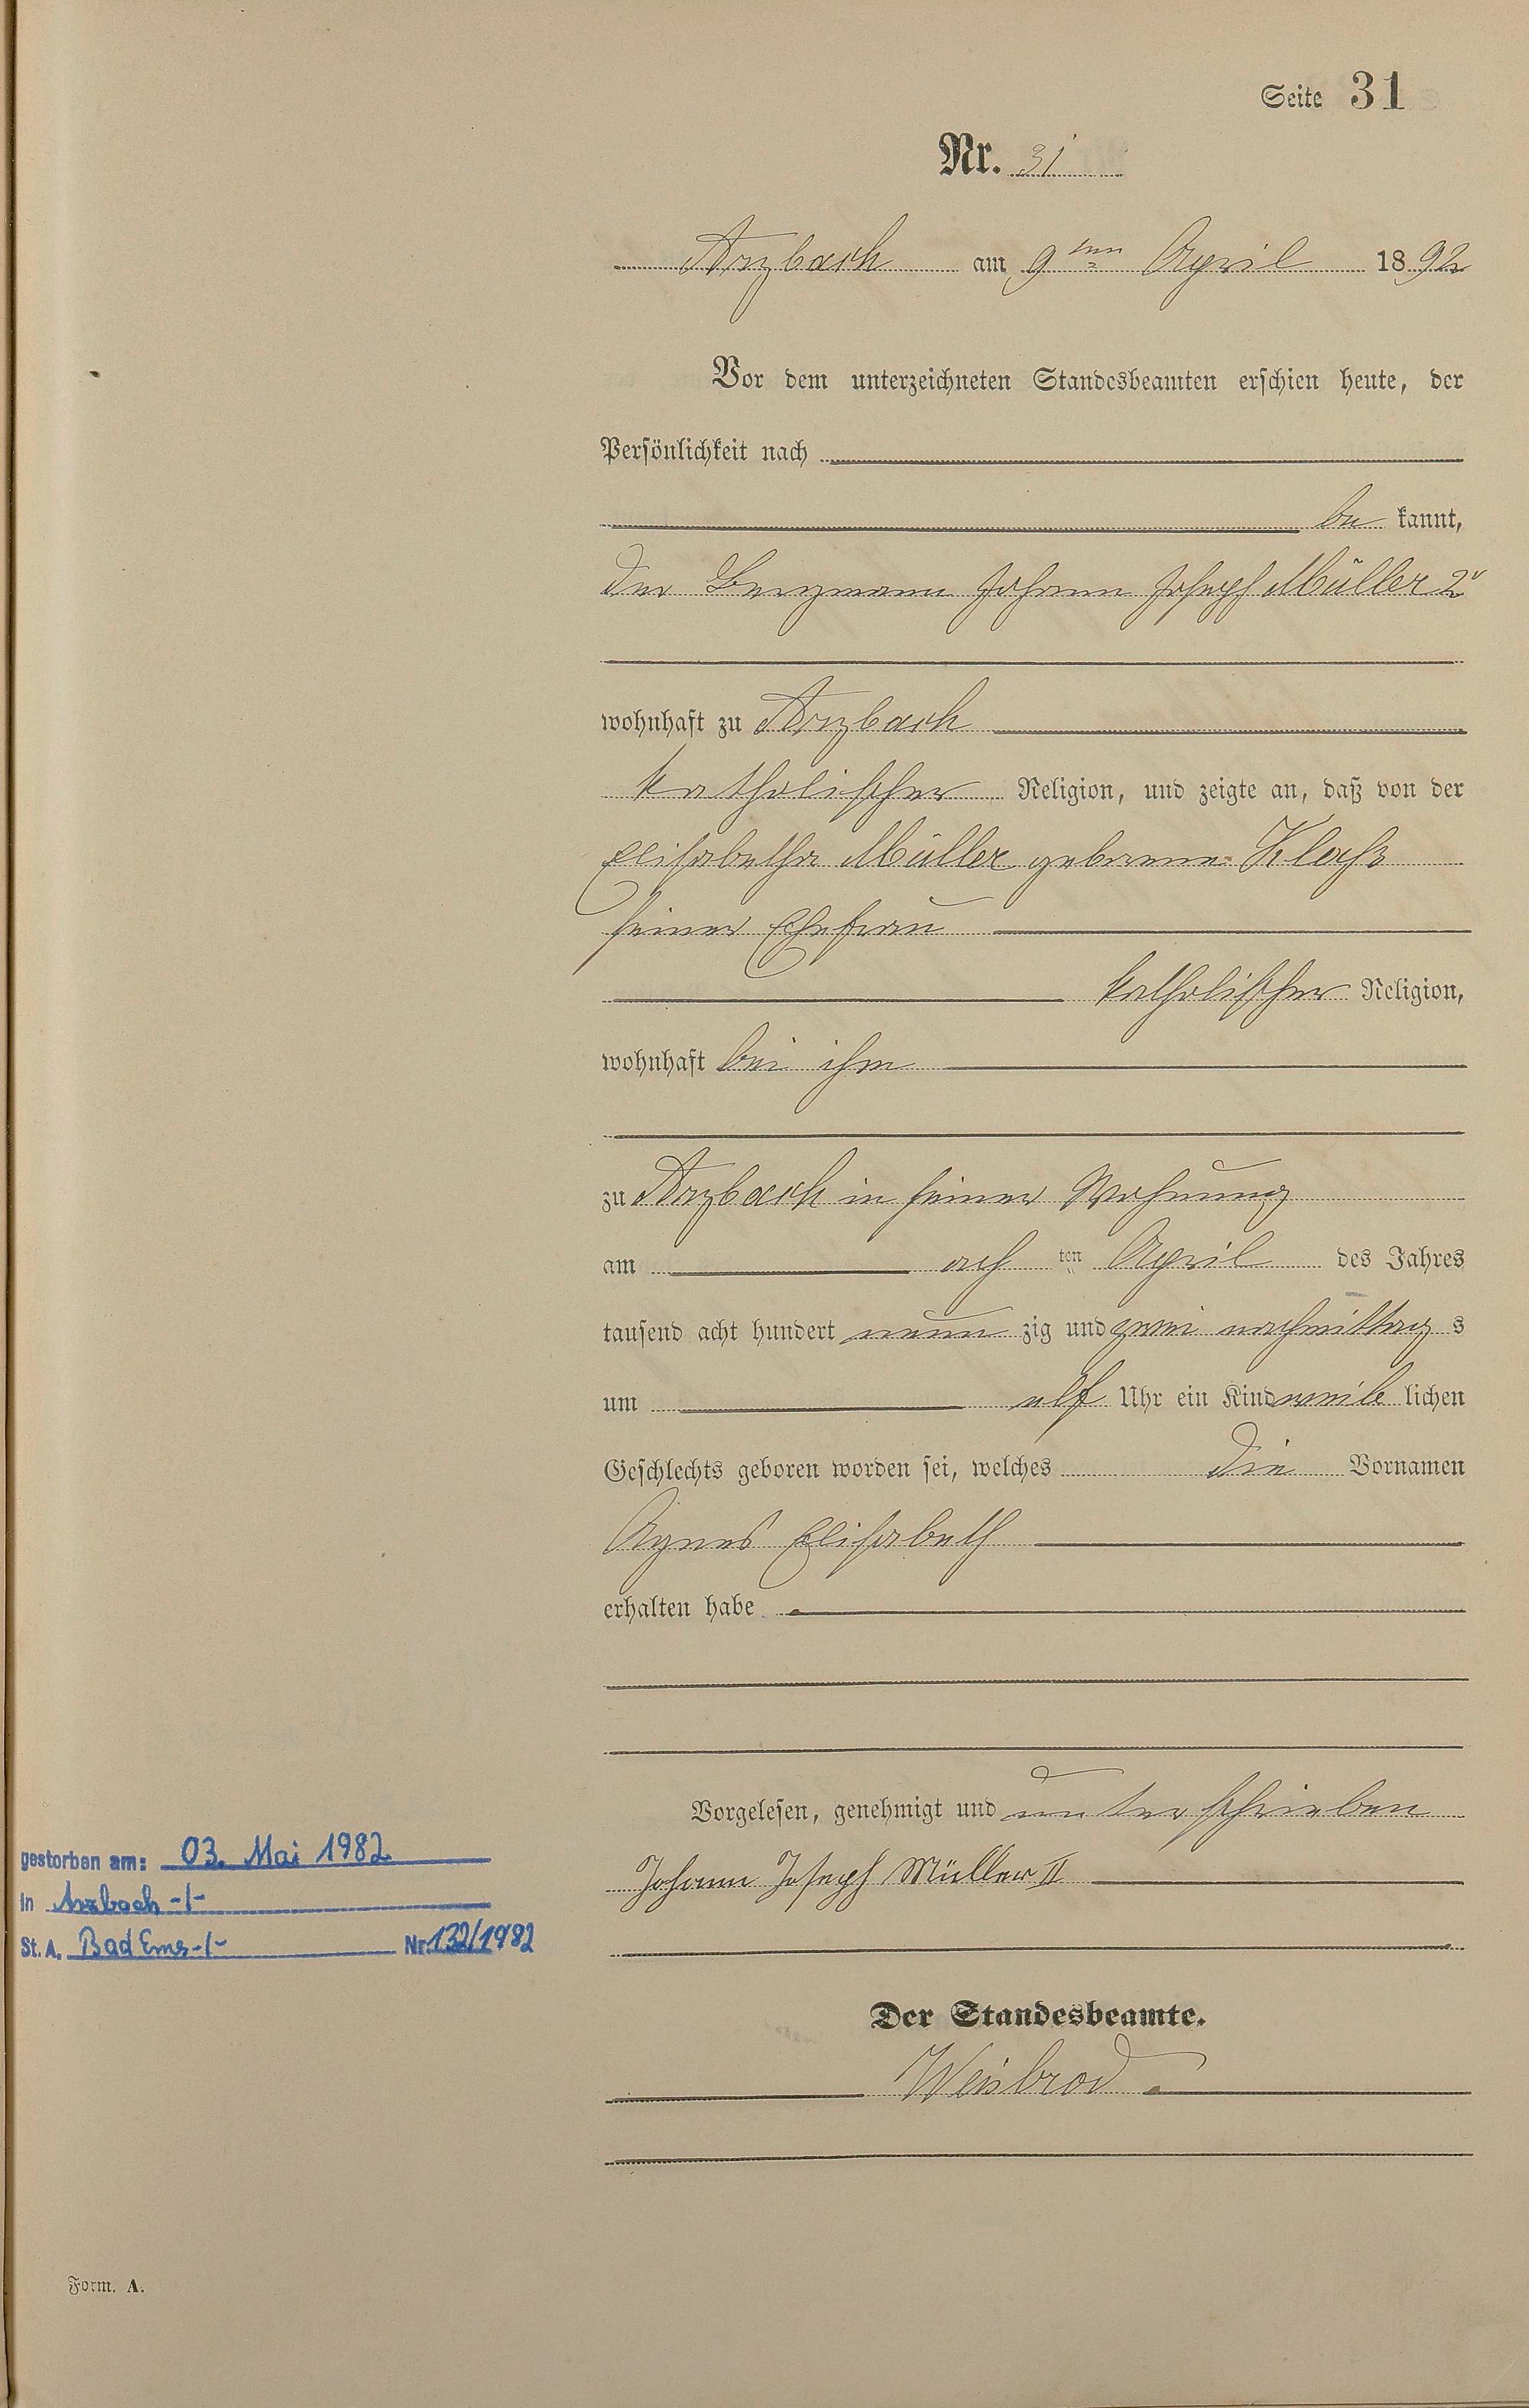 Seite 31
Nr. 31
Arzbach am 9ten April 1892
Vor dem unterzeichneten Standesbeamten erschien heute, der
Persönlichkeit nach
be kannt,
der Bergmann Johann Joseph Müller 2r
wohnhaft zu Arzbach
katholischer Religion, und zeigte an, daß von der
Elisabetha Müller geborene Klaß
seiner Ehefrau
katholischer Religion,
wohnhaft bei ihm
zu Arzbach in seiner Wohnung
am ach ten April des Jahres
tausend acht hundert neun zig und zwei nachmittag s
um elf Uhr ein Kind weib lichen
Geschlechts geboren worden sei, welches die Vornamen
Agnes Elisabeth
erhalten habe
Vorgelesen, genehmigt und unterschrieben
Johann Joseph Müller II
gestorben am: 03. Mai 1982
in Arzbach -/-
St. A. Bad Ems -/- Nr. 132/1982
Der Standesbeamte.
Weisbrod
Form. A.